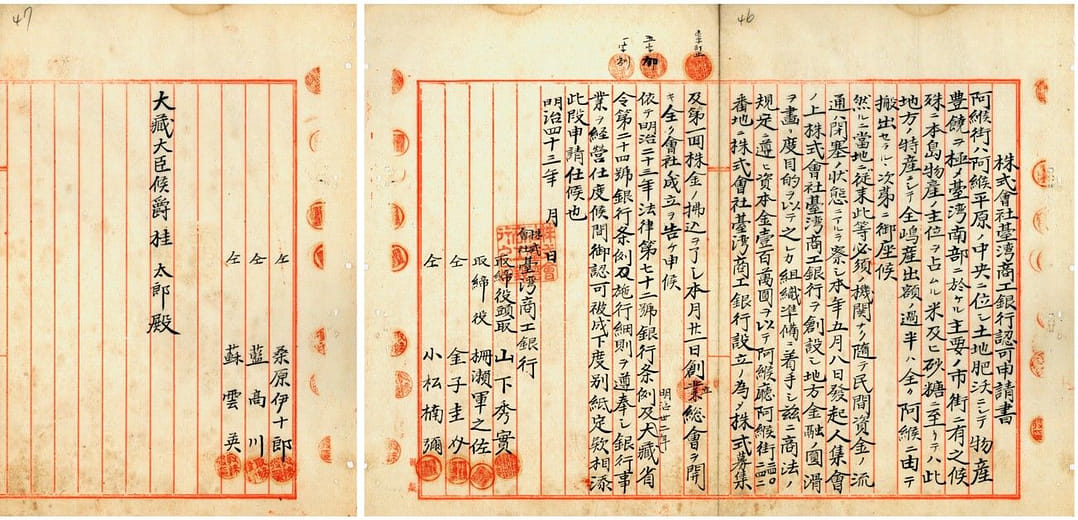 46
株式會社臺灣商工銀行認可申請書
阿緱街ハ阿緱平原ノ中央ニ位シ土地肥沃ニシテ物産
豊饒ヲ極メ臺湾南部ニ於ケル主要ノ市街ニ有之候
殊ニ本島物産ノ主位ヲ占ムル米及ヒ砂糖ニ至リテハ此
地方ノ特産ニシテ全嶋産出額ノ過半ハ全ク阿緱ニ由テ
搬出セラルヽ次第ニ御座候
然ルニ當地ニ従来此等必須ノ機関ナク随テ民間資金ノ流
通ハ閉塞ノ状態ニアルヲ察シ本年五月八日發起人集會
ノ上株式會社臺湾商工銀行ヲ創設シ地方金融ノ圓滑
ヲ畫リ度目的ヲ以テ之レカ組織準備ニ着手シ茲ニ商法ノ
規定ニ遵ヒ資本金壹百萬圓ヲ以テ阿緱廳阿緱街
番地ニ株式會社臺湾商工銀行設立ノ為メ株式募集
及第一回株金ノ拂込ヲ了シ本月廿一日創立総會ヲ開
キ全ク會社ノ成立ヲ告ケ申候
依テ明治二十三年法律第七十二號銀行条例及大藏省
令第二十四號銀行条例及施行細則ヲ遵奉シ銀行事
業ヲ経営仕度候間御認可被成下度別紙定欵相添
此段申請仕候也
明治四十三年 月 日
株式會社臺湾商工銀行
取締役頭取 山下秀實
取締役 柵瀬軍之佐
仝 金子圭介
仝 小松楠彌
47
仝 桑原伊十郎
仝 藍高川
仝 蘇雲英
大藏大臣候爵桂太郎殿